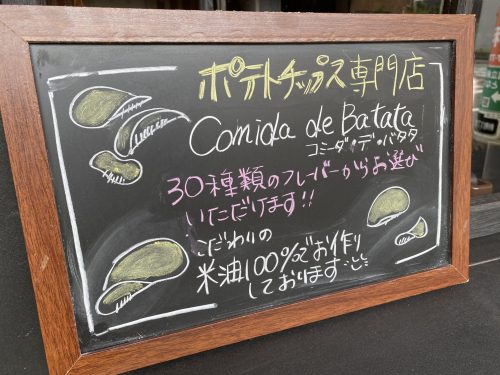 ポテトチップス専門店
Comida de Batata
コミーダ・デ・バタタ
30種類のフレーバーからお選び
いただけます!!
こだわりの
米油100%でお作り
しております